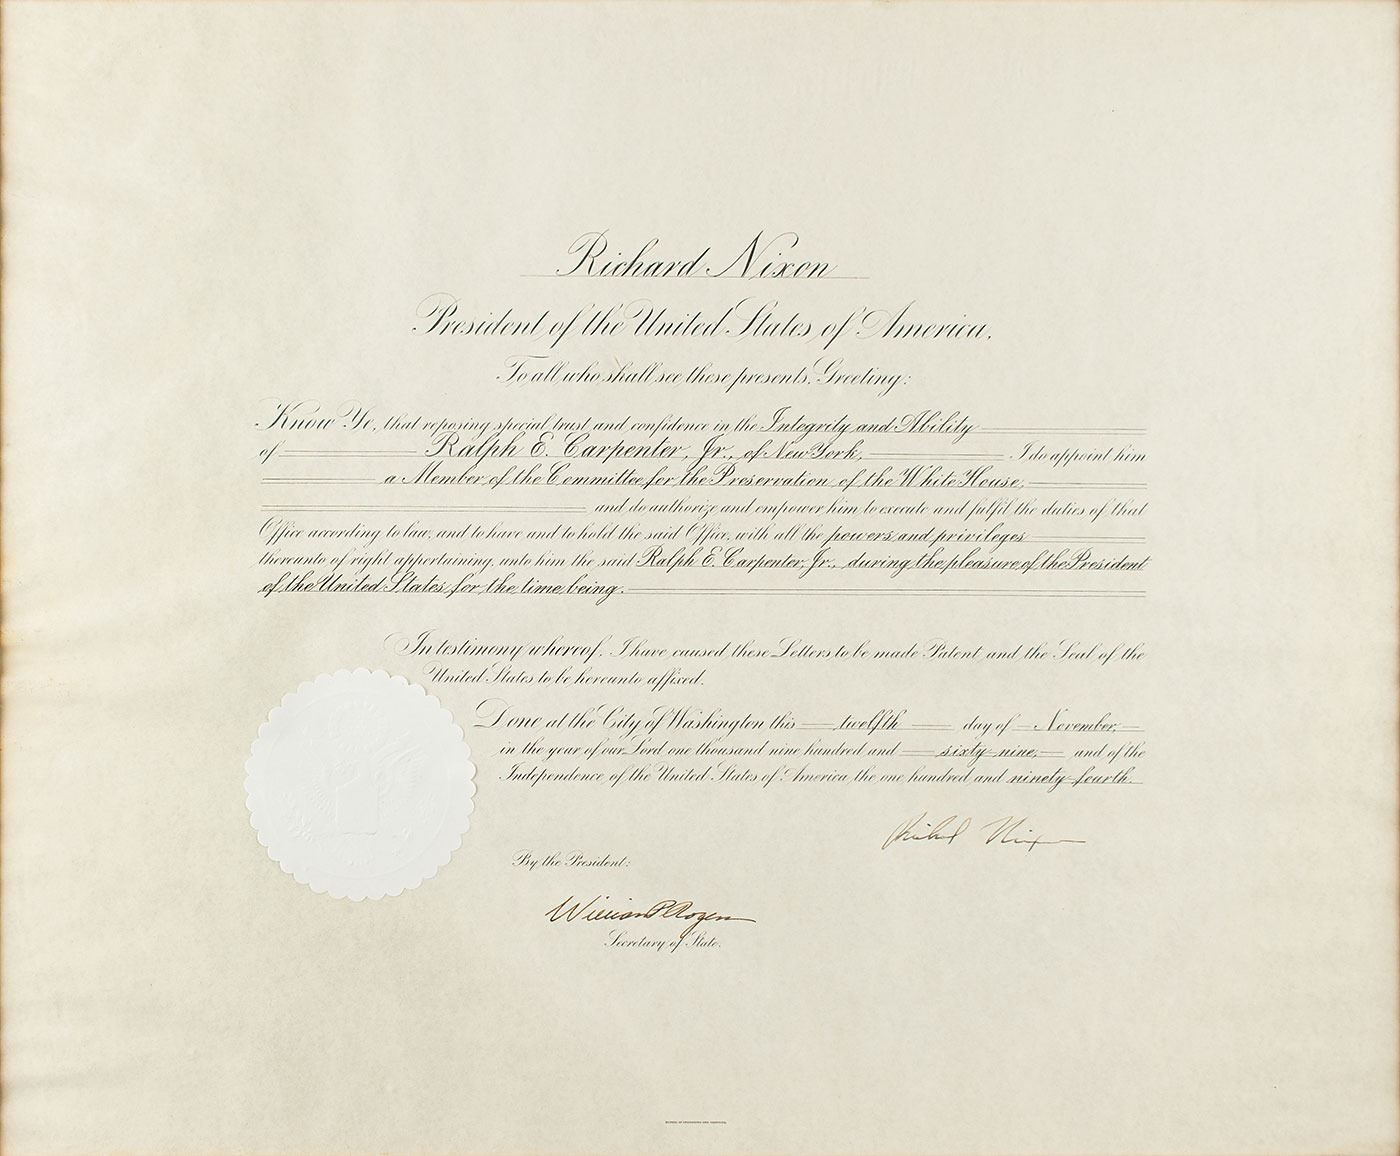 Richard Nixon
President of the United States of America.
To all who shall see these presents, Greeting:
Know Ye, that reposing special trust and confidence in the Integrity and Ability
of Ralph E. Carpenter, Jr., of New York, I do appoint him
a Member of the Committee for the Preservation of the White House,
and do authorize and empower him to execute and fulfil the duties of that
Office according to law, and to have and to hold the said Office, with all the powers and privileges
thereunto of right appertaining, unto him the said Ralph E. Carpenter, Jr., during the pleasure of the President
of the United States for the time being.
In testimony whereof, I have caused these Letters to be made Patent and the Seal of the
United States to be hereunto affixed.
Done at the City of Washington this twelfth day of November,
in the year of our Lord one thousand nine hundred and sixty-nine, and of the
Independence of the United States of America the one hundred and ninety-fourth.
Richard Nixon
By the President:
William P. Rogers
Secretary of State.
BUREAU OF ENGRAVING AND PRINTING